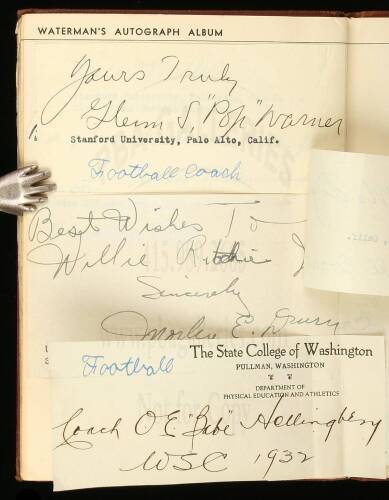 WATERMAN'S AUTOGRAPH ALBUM
Yours Truly
Glenn S. "Pop" Warner
Stanford University, Palo Alto, Calif.
Football Coach
Best Wishes To
Willie Ritchie J
Sincerely
Morley E. Drury
Football
The State College of Washington
PULLMAN, WASHINGTON
DEPARTMENT OF
PHYSICAL EDUCATION AND ATHLETICS
Coach O E "Babe" Hollingbery
WSC 1932